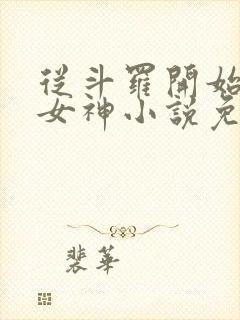 從斗羅開始
女神小說免
裴華